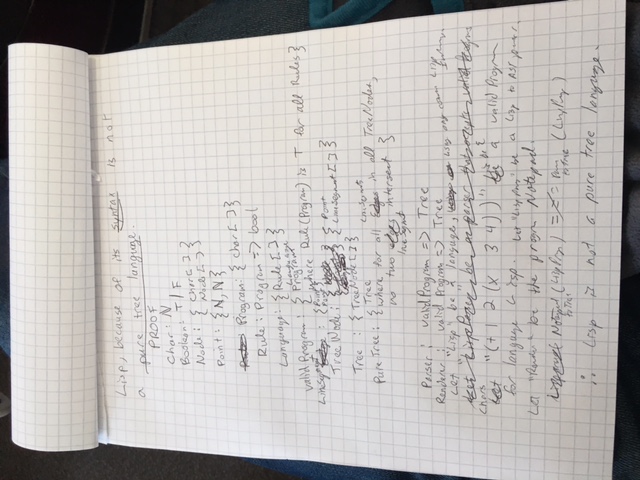 Lisp, because of its syntax is not
a pure tree language.
PROOF
Char: ℕ
Boolean: T / F
Node: { Char[ ] }
{ Node[ ] }
Point: {ℕ, ℕ}
Program: { char[ ] }
Rule: Program => bool
Language: { Rule[ ] }
Language
validProgram: { Program
where Rule(Program) is T for all Rules}
LineSegment: {Point, Point}
TreeNode: { Point
LineSegment[ ] }
Tree: { TreeNode[ ] }
PureTree: { Tree
where for all LineSegments in all TreeNodes,
no two intersect }
lineSegment
Parser: validProgram => Tree
Renderer: validProgram => Tree
Let "Lisp" be a language, using any common Lisp
Chars
"(+ 1 2 (x 3 4))" be a valid Program
for language Lisp. Let "LispProg" be a Lisp to AST parser.
Let "Render" be the program Notepad.
Notepad (LispProg) =≠= (LispProg)
toTree toTree
∴ Lisp is not a pure tree language.